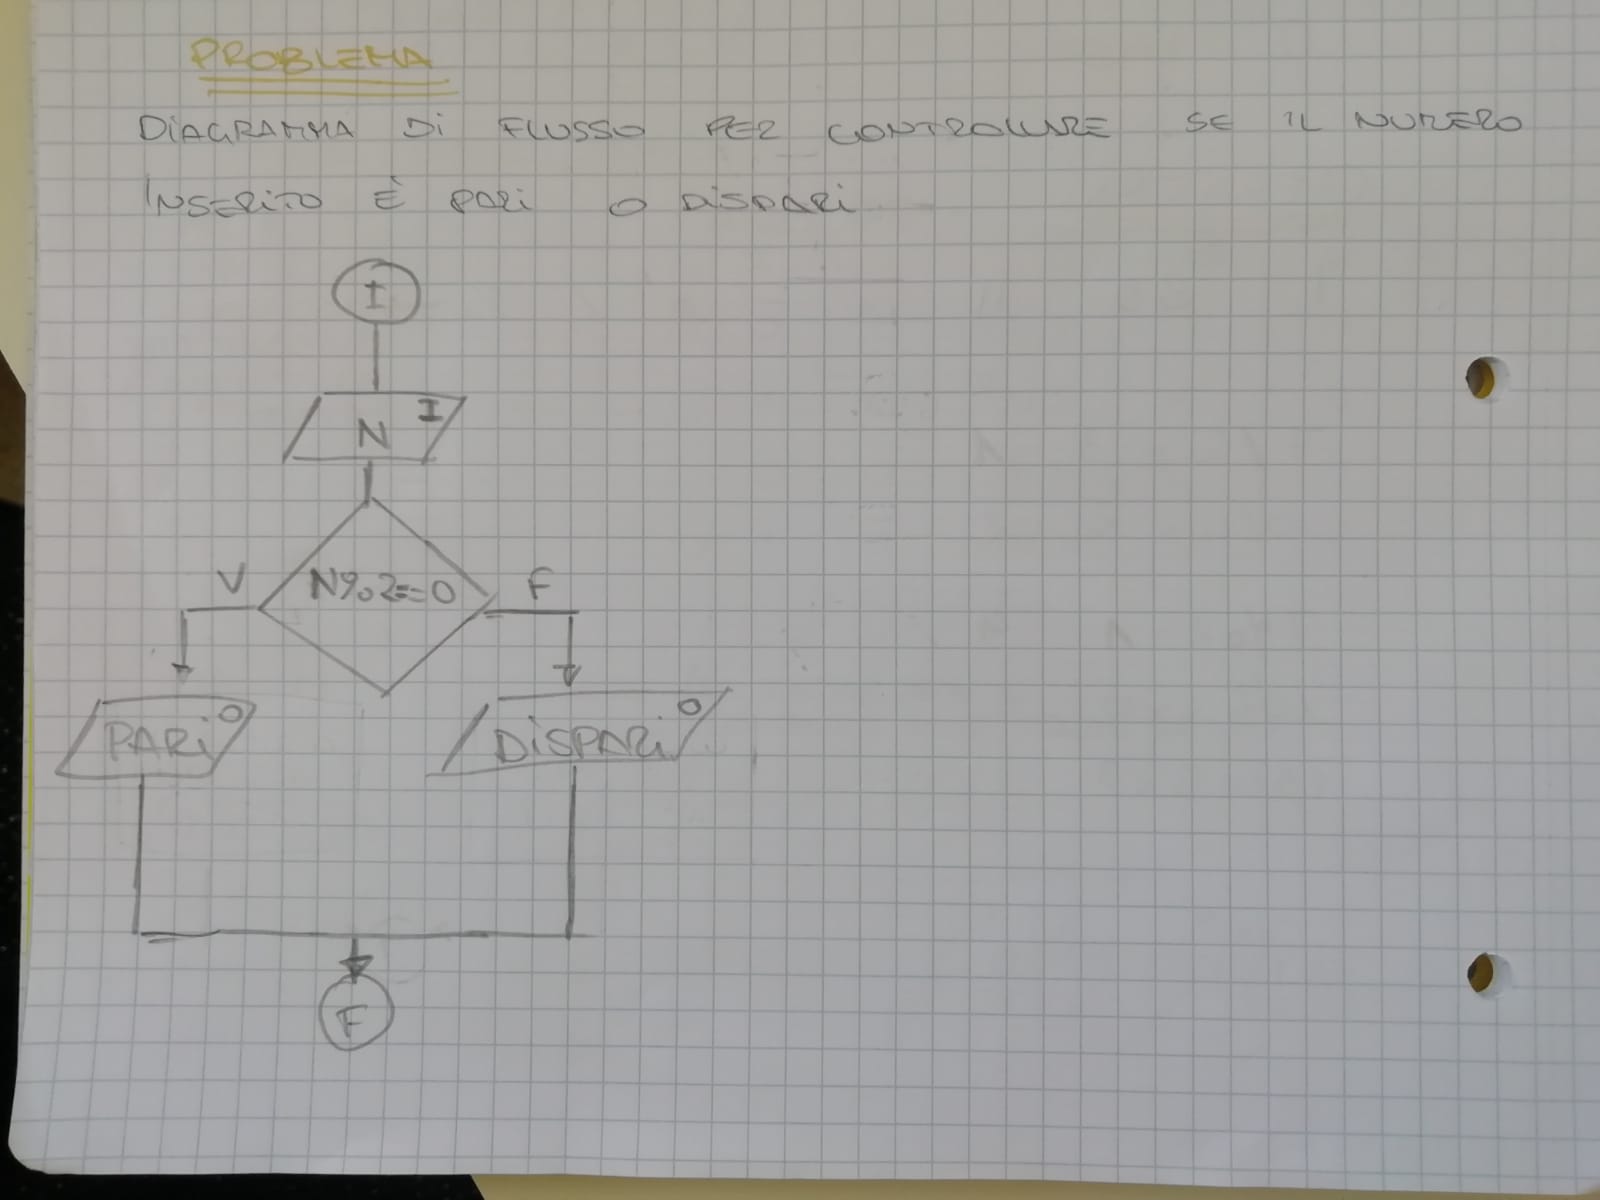 PROBLEMA
DIAGRAMMA DI FLUSSO PER CONTROLLARE SE IL NUMERO
INSERITO È PARI O DISPARI
I
I
N
V
N%2==0
F
PARI
O
DISPARI
O
F